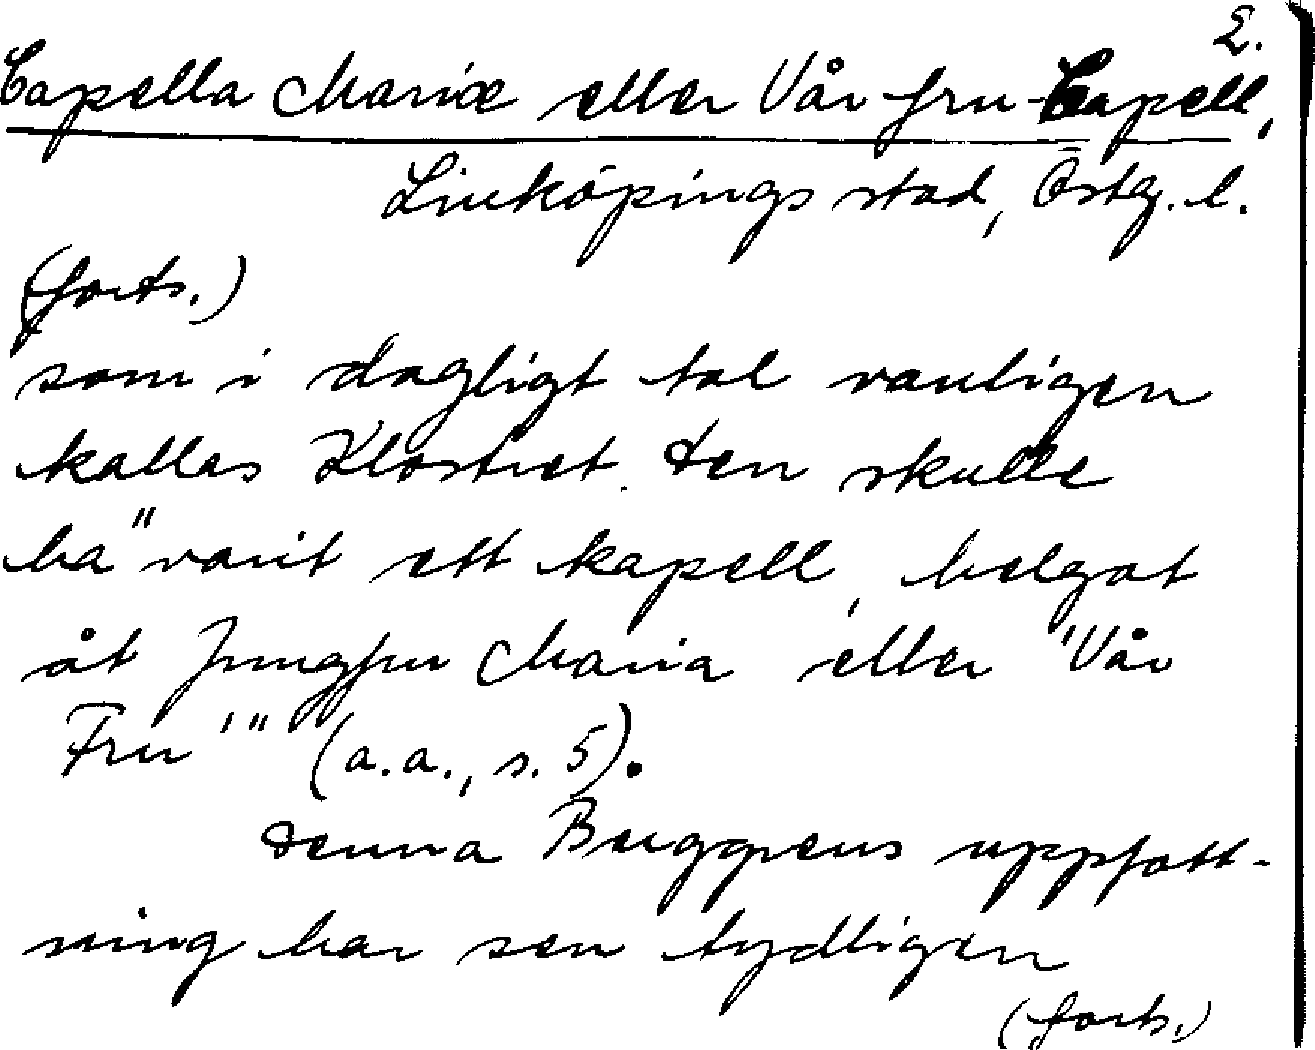 2.
Capella Mariæ eller Vår fru Capell,
Linköpings stad, Östg. l.
(forts.)
som i dagligt tal vanligen
kallas Klostret. Den skulle
ha" varit ett kapell, helgat
åt Jungfru Maria eller 'Vår
Fru'" (a.a., s. 5).
Denna Buggrens uppfatt-
ning har sen tydligen
(forts.)